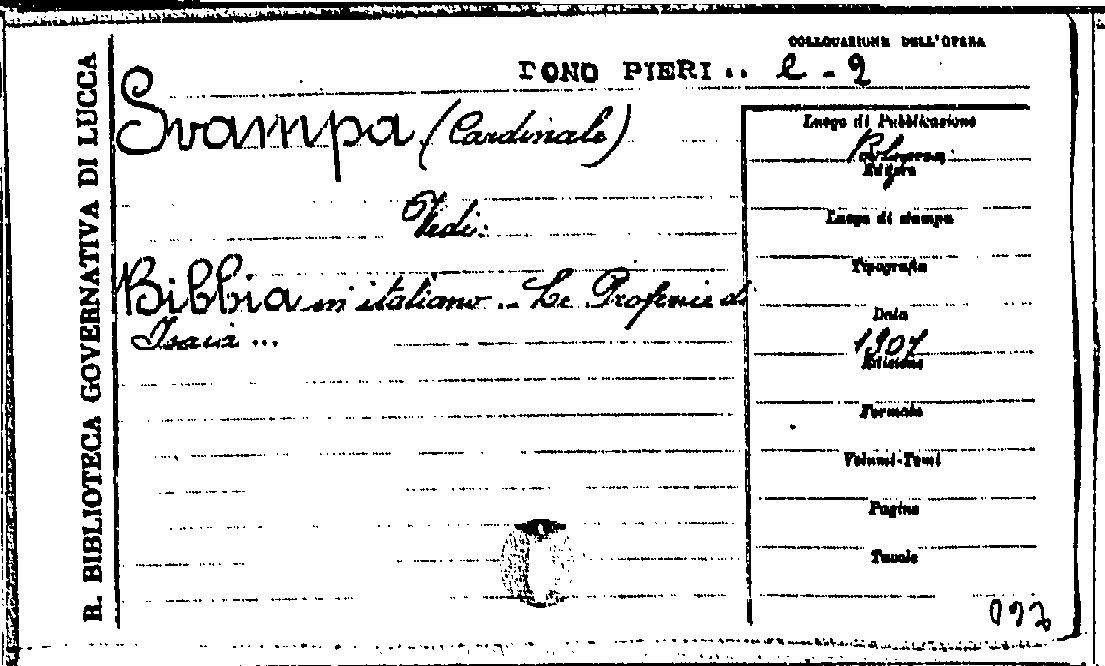 R. BIBLIOTECA GOVERNATIVA DI LUCCA
COLLOCAZIONE DELL'OPERA
DONO PIERI .. e - 2
Svampa (Cardinale)
Vedi:
Bibbia in italiano .. Le Profezie di
Isaia ...
Luogo di Pubblicazione
Bologna
Editore
Luogo di stampa
Tipografia
Data
1907
Edizione
Formato
Volumi-Tomi
Pagine
Tavole